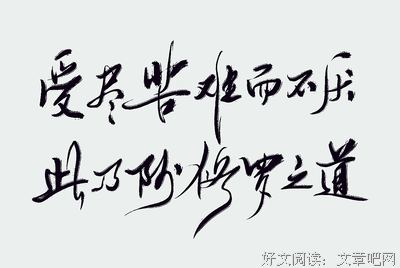 受尽苦难而不厌
此乃阿修罗之道
好文阅读：文章吧网